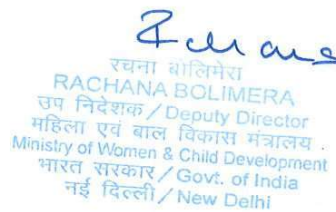 रचना बोलिमेरा
RACHANA BOLIMERA
उप निदेशक / Deputy Director
महिला एवं बाल विकास मंत्रालय
Ministry of Women & Child Development
भारत सरकार / Govt. of India
नई दिल्ली / New Delhi